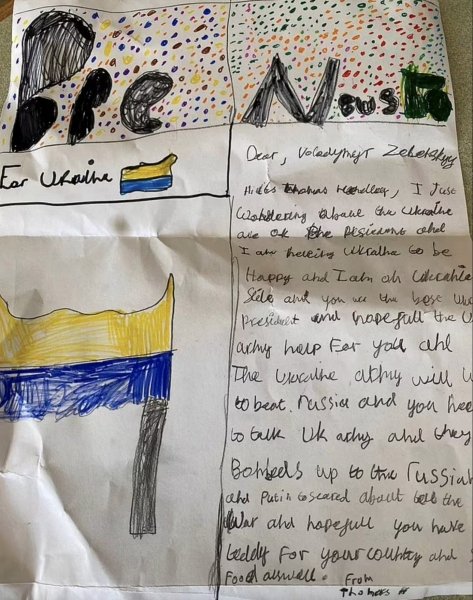 Bre News
For Ukraine
Dear, Volodymyr Zelenskyy
Thomas I Just
Wondering about the Ukraine
are ok the president and
I am Ukraine to be
Happy and I am on Ukraine
Side and you are the best
president and hopefull the
army help For you and
The Ukraine army will
to beat russia and you
to talk Uk army and they
up to the russian
and Putin scared about the
War and hopefull you have
teddy For your country and
Food aswell. From
Thomas H